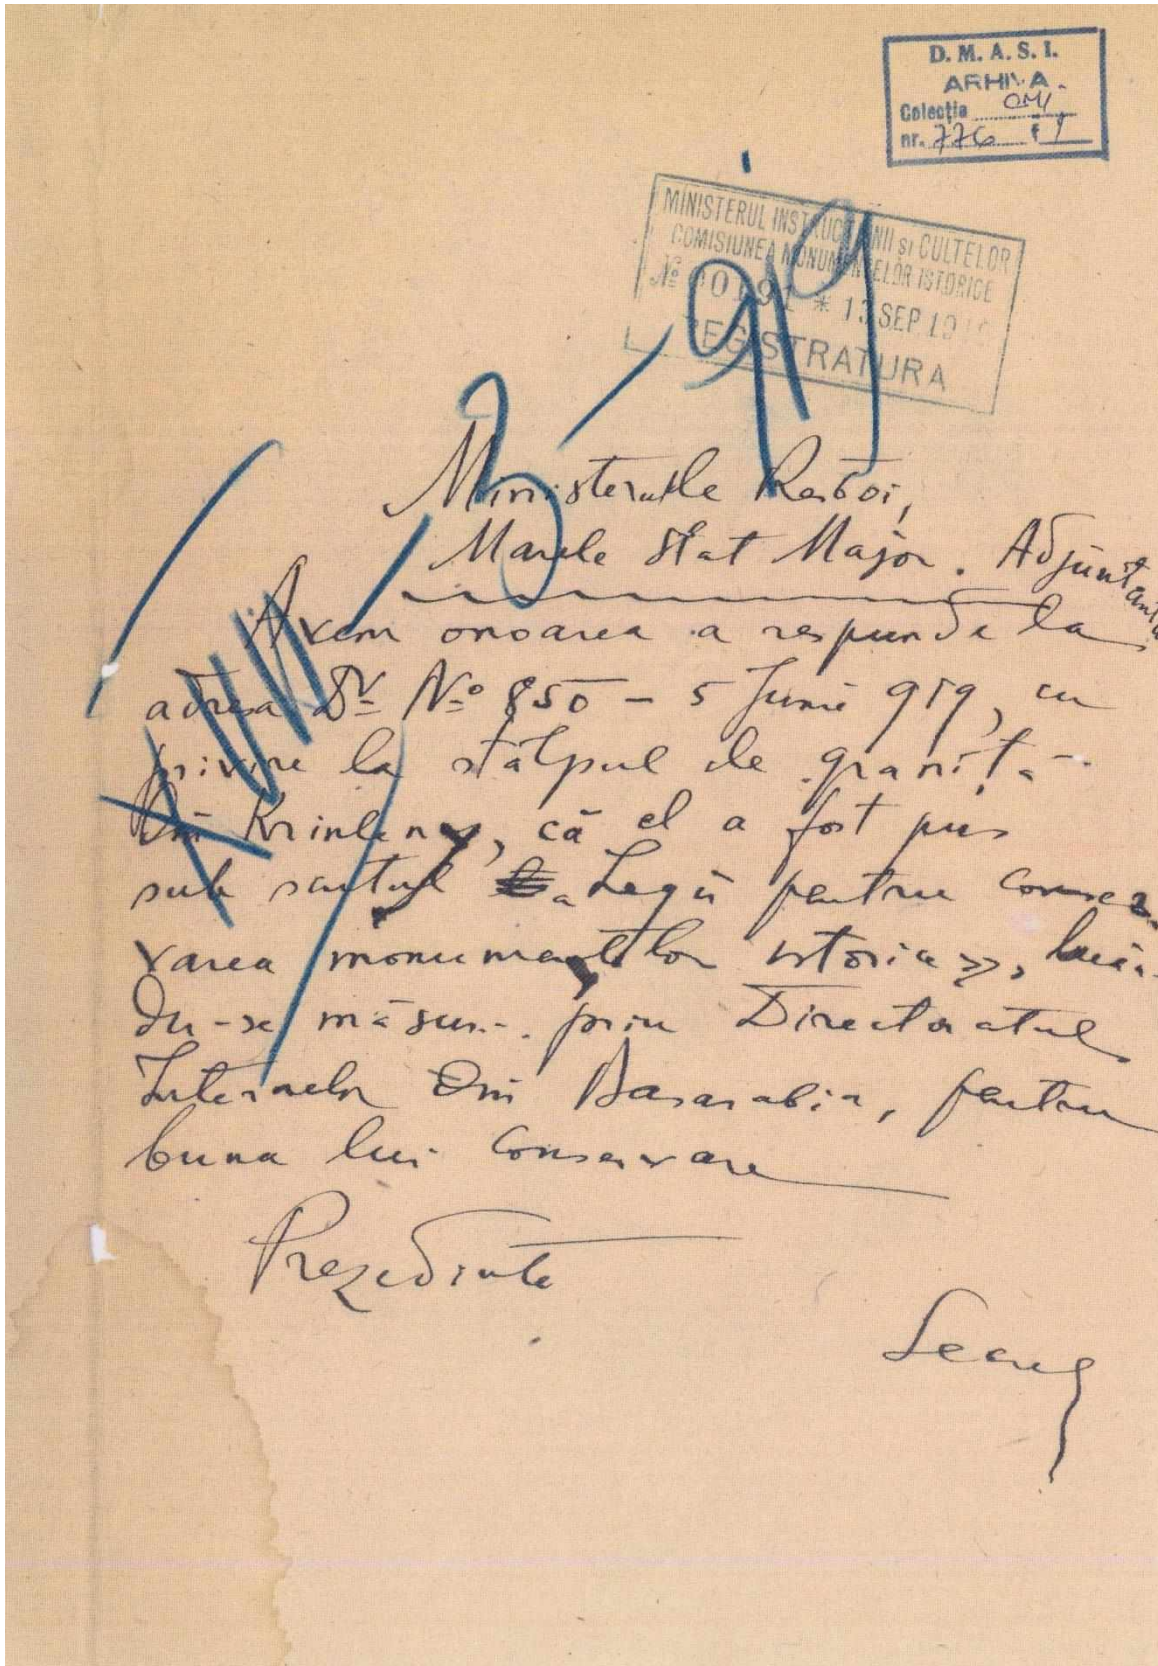 D. M. A. S. I.
ARHIVA
Colecția CMI
nr. 776 f 1
MINISTERUL INSTRUCȚIUNII și CULTELOR
COMISIUNEA MONUMENTELOR ISTORICE
* 13 SEP 19
REGISTRATURA
919
Ministerul de Resboi,
Marele Stat Major. Adjuntantu
Avem onoarea a respunde la
adresa Dv No 850 – 5 Iunie 919, cu
privire la stâlpul de graniță
din, că el a fost pus
sub scutul Legii pentru conser
varea monumentelor istorice», luân-
du-se măsuri prin Directoratul
Internelor din Basarabia, pentru
buna lui conservare
Prezedinte